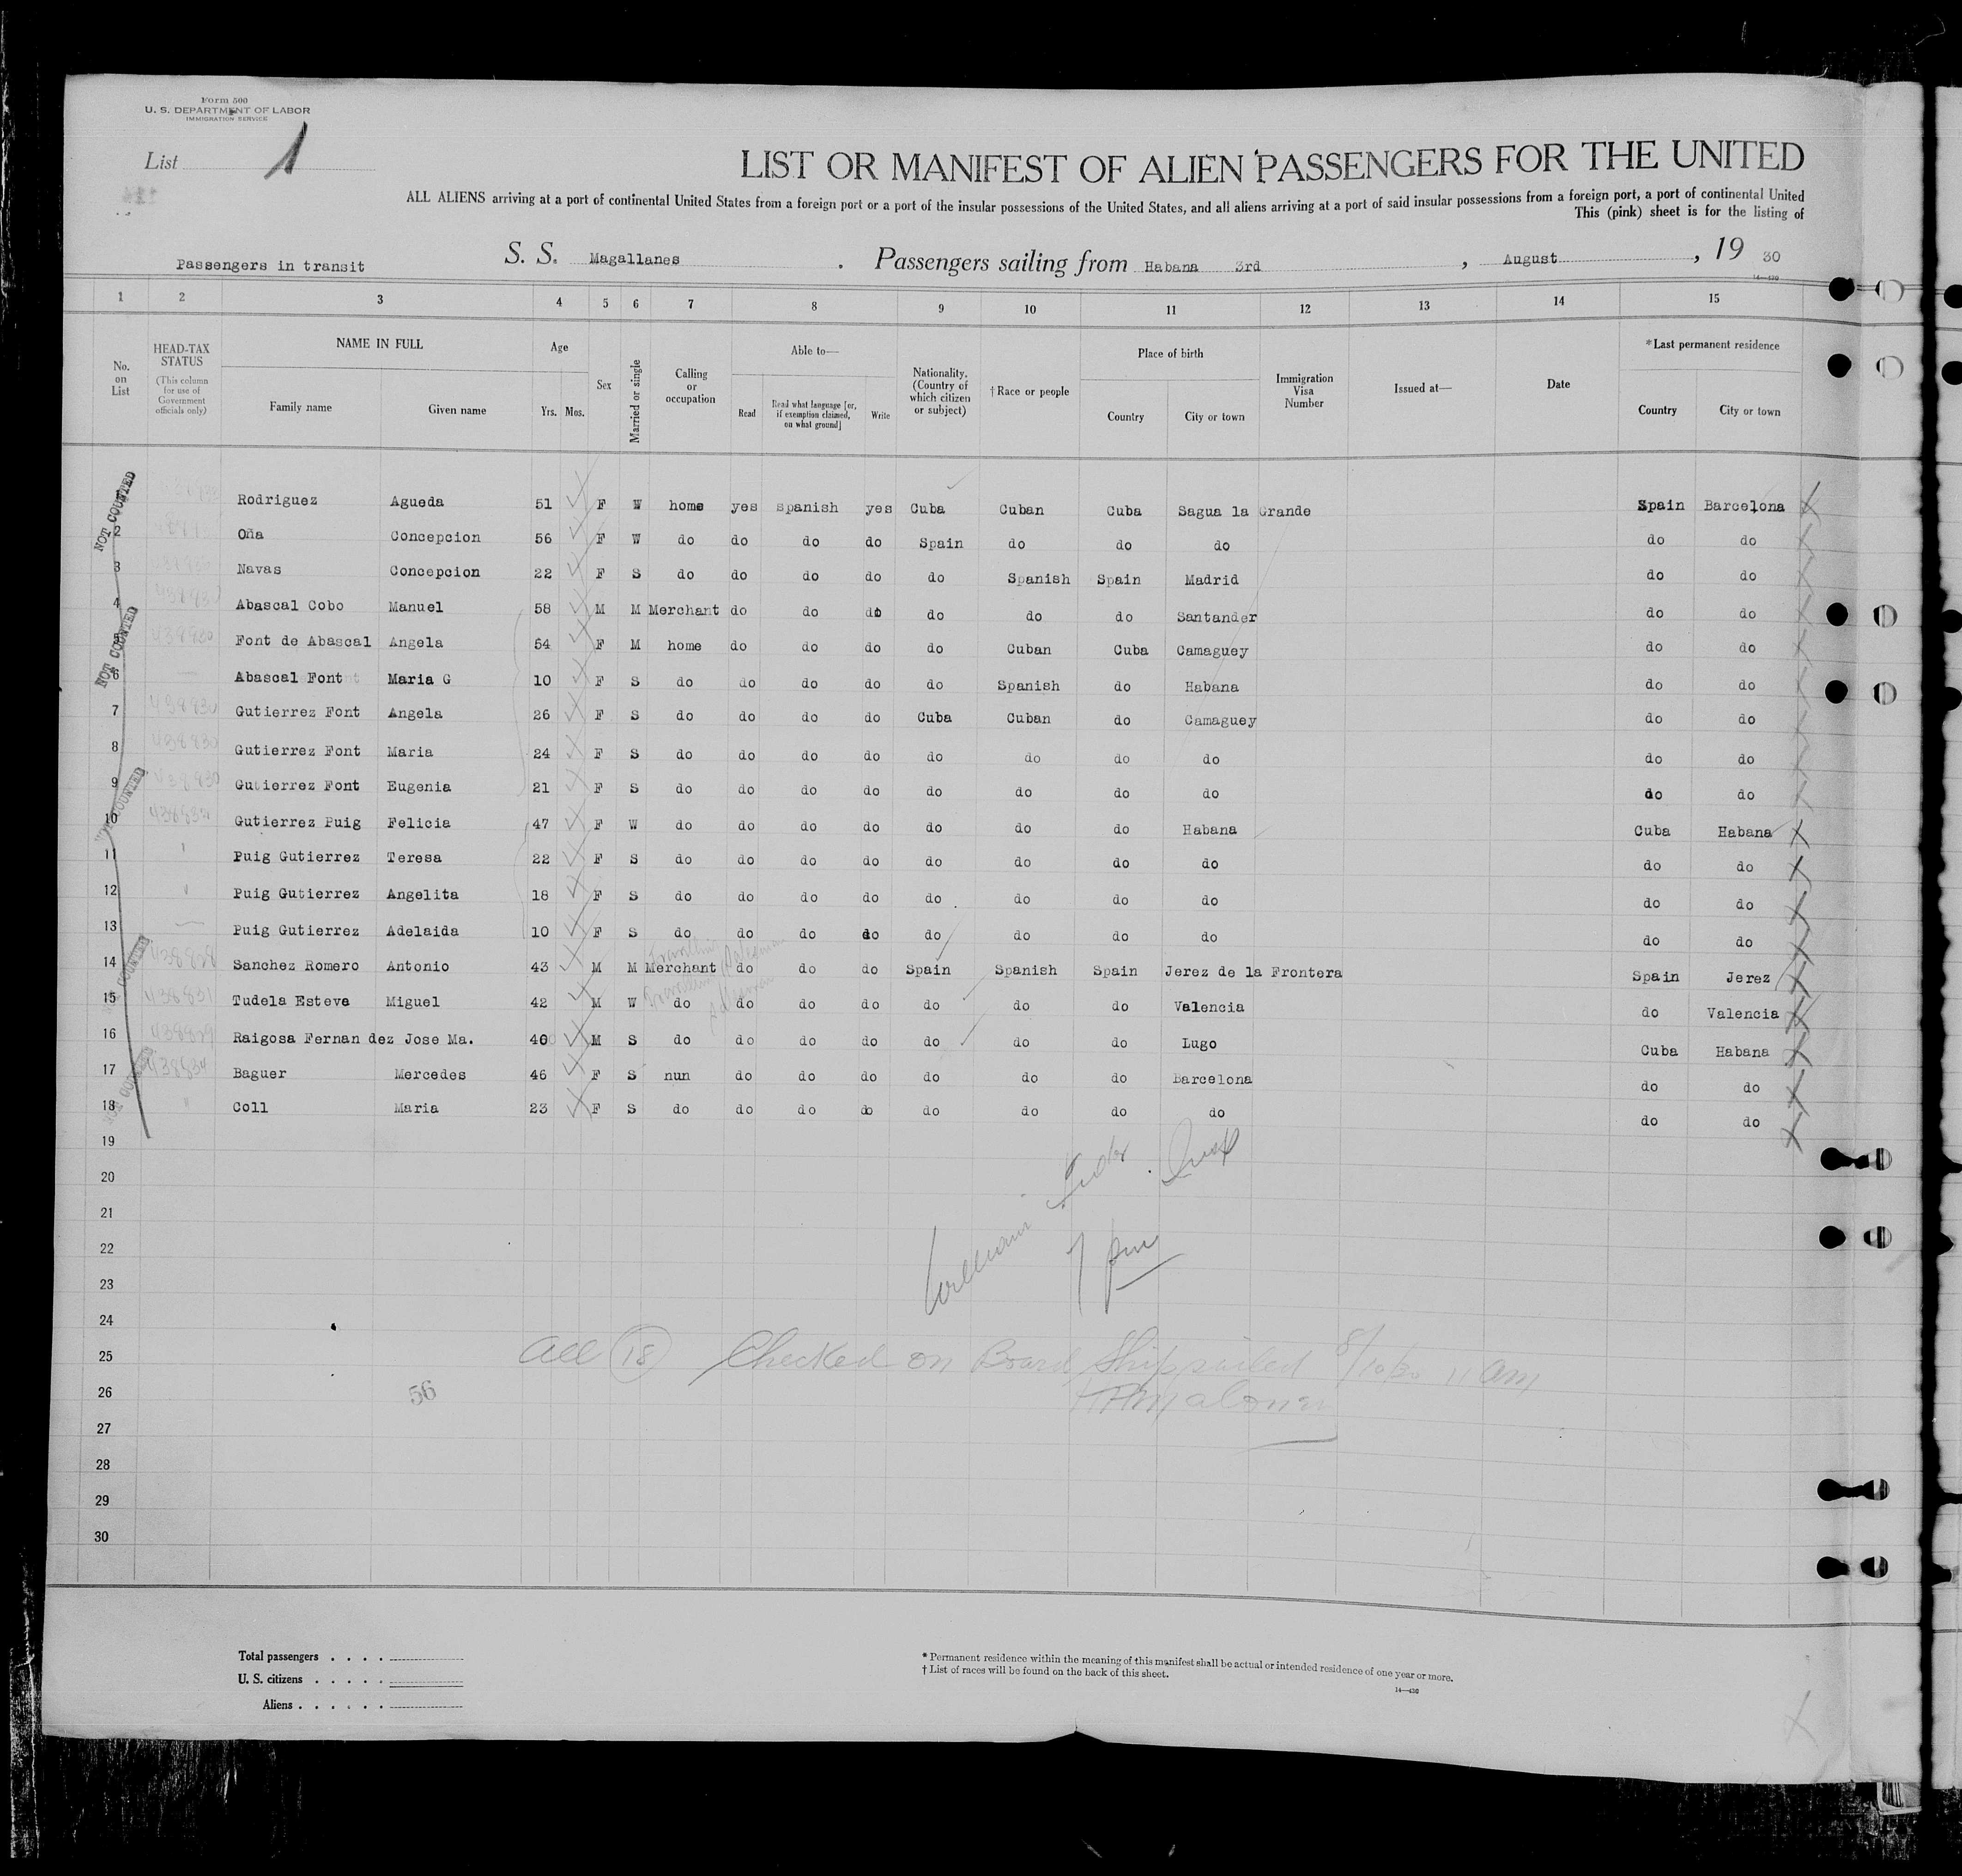 Form 500
U. S. DEPARTMENT OF LABOR
IMMIGRATION SERVICE
List 1
LIST OR MANIFEST OF ALIEN PASSENGERS FOR THE UNITED
ALL ALIENS arriving at a port of continental United States from a foreign port or a port of the insular possessions of the United States, and all aliens arriving at a port of said insular possessions from a foreign port, a port of continental United
This (pink) sheet is for the listing of
Passengers in transit S. S. Magallanes . Passengers sailing from Habana 3rd , August , 19 30
14—430
1 2 3 4 5 6 7 8 9 10 11 12 13 14 15
No. on List HEAD-TAX STATUS (This column for use of Government officials only) NAME IN FULL Family name Given name Age Yrs. Mos. Sex Married or single Calling or occupation Able to— Read Read what language [or, if exemption claimed, on what ground] Write Nationality. (Country of which citizen or subject) † Race or people Place of birth Country City or town Immigration Visa Number Issued at— Date * Last permanent residence Country City or town
NOT COUNTED
Rodriguez Agueda 51 F W home yes spanish yes Cuba Cuban Cuba Sagua la Grande Spain Barcelona
2 Oña Concepcion 56 F W do do do do Spain do do do do do
3 Navas Concepcion 22 F S do do do do do Spanish Spain Madrid do do
4 438830 Abascal Cobo Manuel 58 M M Merchant do do do do do do Santander do do
NOT COUNTED
5 438830 Font de Abascal Angela 54 F M home do do do do Cuban Cuba Camaguey do do
6 — Abascal Font Maria G 10 F S do do do do do Spanish do Habana do do
7 438830 Gutierrez Font Angela 26 F S do do do do Cuba Cuban do Camaguey do do
8 438830 Gutierrez Font Maria 24 F S do do do do do do do do do do
9 438830 Gutierrez Font Eugenia 21 F S do do do do do do do do do do
NOT COUNTED
10 Gutierrez Puig Felicia 47 F W do do do do do do do Habana Cuba Habana
11 " Puig Gutierrez Teresa 22 F S do do do do do do do do do do
12 " Puig Gutierrez Angelita 18 F S do do do do do do do do do do
13 — Puig Gutierrez Adelaida 10 F S do do do do do do do do do do
NOT COUNTED
Travelling Salesman
14 438828 Sanchez Romero Antonio 43 M M Merchant do do do Spain Spanish Spain Jerez de la Frontera Spain Jerez
Travelling Salesman
15 438831 Tudela Esteve Miguel 42 M W do do do do do do do Valencia do Valencia
16 438829 Raigosa Fernandez Jose Ma. 40 M S do do do do do do do Lugo Cuba Habana
NOT COUNTED
17 438834 Baguer Mercedes 46 F S nun do do do do do do Barcelona do do
18 " Coll Maria 23 F S do do do do do do do do do do
19
20
21
22
7 pm
23
24
25 All 18 Checked on Board Ship sailed 8/10/30 11 am
26 56
27
28
29
30
Total passengers . . . .
U. S. citizens . . . . .
Aliens . . . . . .
* Permanent residence within the meaning of this manifest shall be actual or intended residence of one year or more.
† List of races will be found on the back of this sheet.
14—430